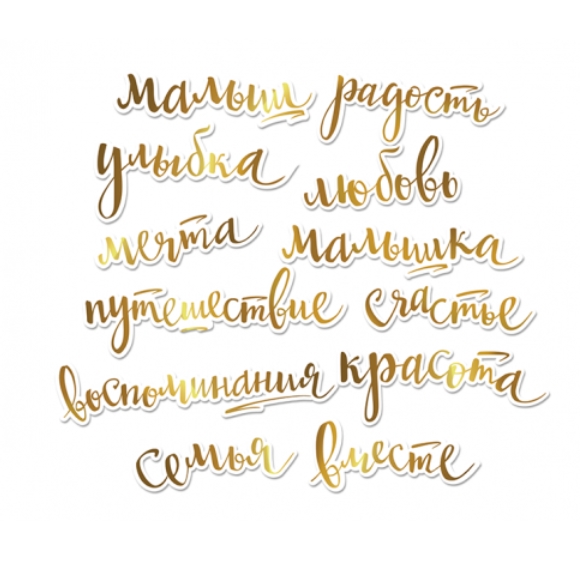 малыш радость
улыбка любовь
мечта малышка
путешествие счастье
воспоминания красота
семья вместе